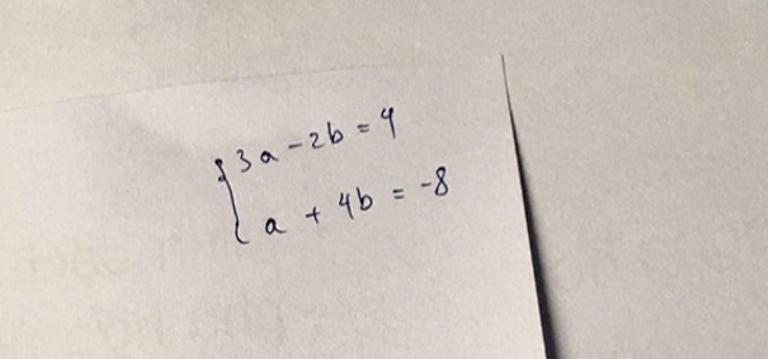 3a - 2b = 4
a + 4b = -8